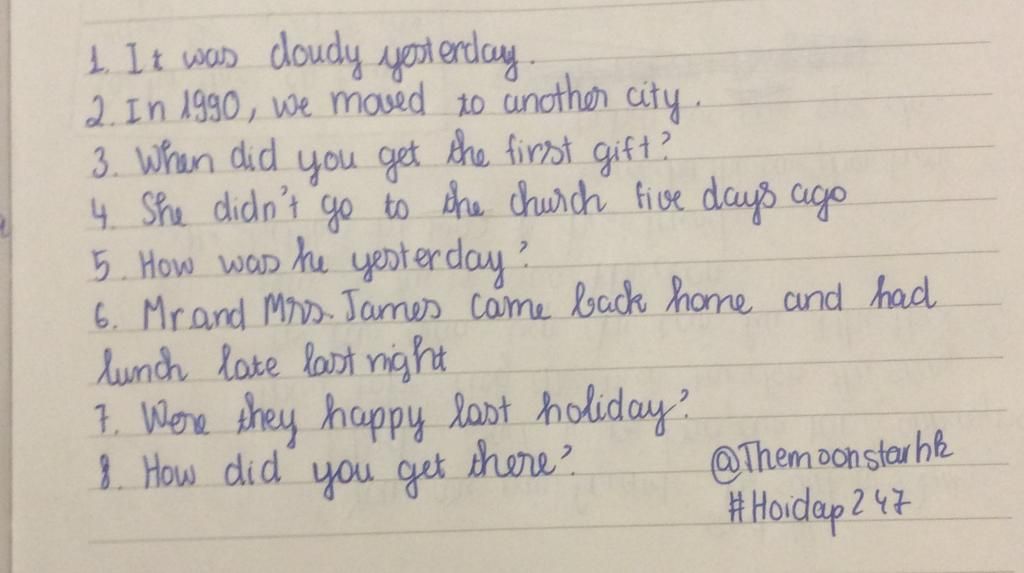 1. It was cloudy yesterday.
2. In 1990, we moved to another city.
3. When did you get the first gift?
4. She didn't go to the church five days ago
5. How was he yesterday?
6. Mr and Mrs. James came back home and had
lunch late last night
7. Were they happy last holiday?
8. How did you get there?
@Themoonstarhk
#Hoidap247